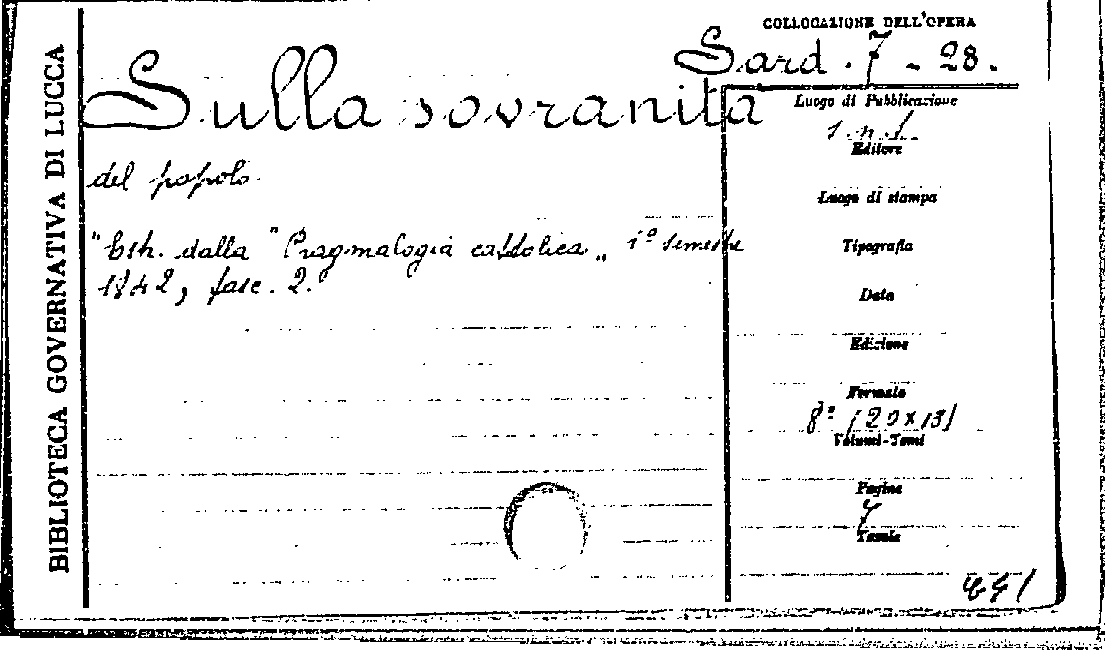 BIBLIOTECA GOVERNATIVA DI LUCCA
COLLOCAZIONE DELL'OPERA
Sard. 7 - 28.
Sulla sovranità
del popolo.
"Estr. dalla "Pragmalogia cattolica„ 1º semestre
1842, fasc. 2.
Luogo di Pubblicazione
s.n.t.
Editore
Luogo di stampa
Tipografia
Data
Edizione
Formato
8º (20x13)
Volumi-Tomi
Pagine
7
Tavole